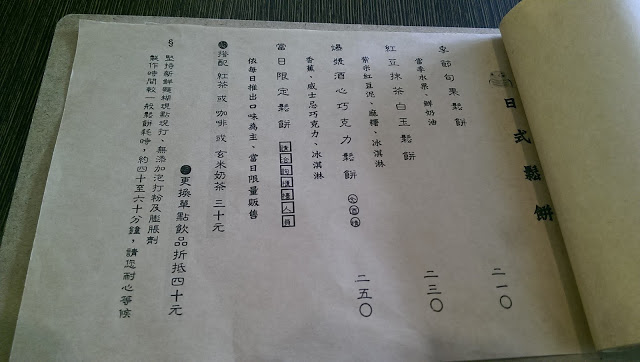 日式鬆餅
季節旬果鬆餅 二一〇
當季水果、鮮奶油
紅豆抹茶白玉鬆餅 二三〇
紫米紅豆泥、麻糬、冰淇淋
爆漿酒心巧克力鬆餅 含酒精 二五〇
香蕉、威士忌巧克力、冰淇淋
當日限定鬆餅 請洽詢現場人員
依每日推出口味為主、當日限量販售
搭配 紅茶 或 咖啡 或 玄米奶茶 三十元
更換單點飲品折抵四十元
§ 堅持新鮮麵糊現點現打、無添加泡打粉及膨脹劑
製作時間較一般鬆餅耗時，約四十至六十分鐘，請您耐心等候